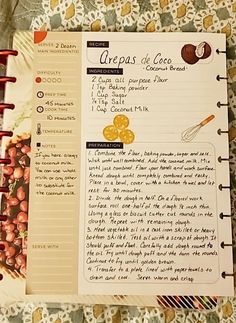 SERVES 2 Dozen
MAIN INGREDIENT(S)
DIFFICULTY
PREP TIME
45 MINUTES
COOK TIME
10 MINUTES
TEMPERATURE
NOTES
SERVE WITH
RECIPE
Arepas de Coco
- Coconut Bread -
INGREDIENTS
2 Cups all purpose Flour
1 Tsp Baking powder
1 Cup Sugar
Tsp Salt
1 Cup Coconut Milk
PREPARATION
1. Combine the flour, baking powder, sugar and salt.
Whisk until well combined. Add the coconut milk. Mix
until just combined. Flour your hands and work surface.
Knead dough until completely combined and
Place in a bowl, cover with a kitchen towel and let
rest for 30 minutes.
2. Divide the dough in half. On a floured work
surface roll one-half of the dough
Using a glass or biscuit cutter cut rounds in the
dough. Repeat with remaining dough.
3. Heat vegetable oil in a cast iron skillet or heavy
bottom skillet. Test oil with a scrap of dough. It
should puff and float. Carefully add dough rounds to
the oil. Fry until dough puffs and turn the rounds
Continue to fry until golden brown.
4. Transfer to a plate lined with paper towels to
drain and cool. Serve warm and crisp